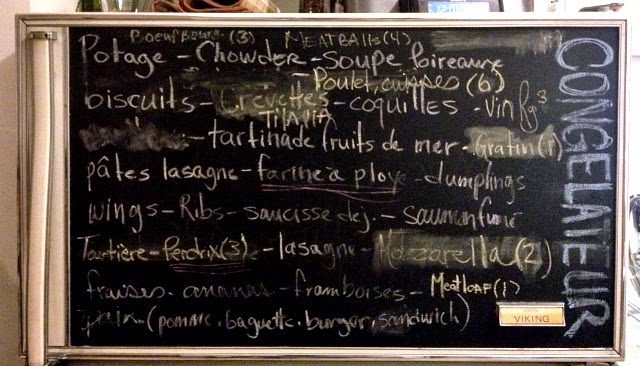 Boeuf Bourg. (3) MEATBALLS (4)
Potage - Chowder - Soupe Poireaux
- Poulet, cuisses (6)
biscuits - Crevettes - COQUILLES - Vin Rg 3
TILAPIA
- tartinade fruits de mer - Gratin (1)
pâtes lasagne - farine à ploye - dumplings
wings - Ribs - saucisse dej. - saumon fumé
Tourtière - Perdrix (3) - lasagne - Mozzarella (2)
fraises - ananas - framboises - Meatloaf (1)
pain (pomme, baguette, burger, sandwich)
CONGELATEUR
VIKING